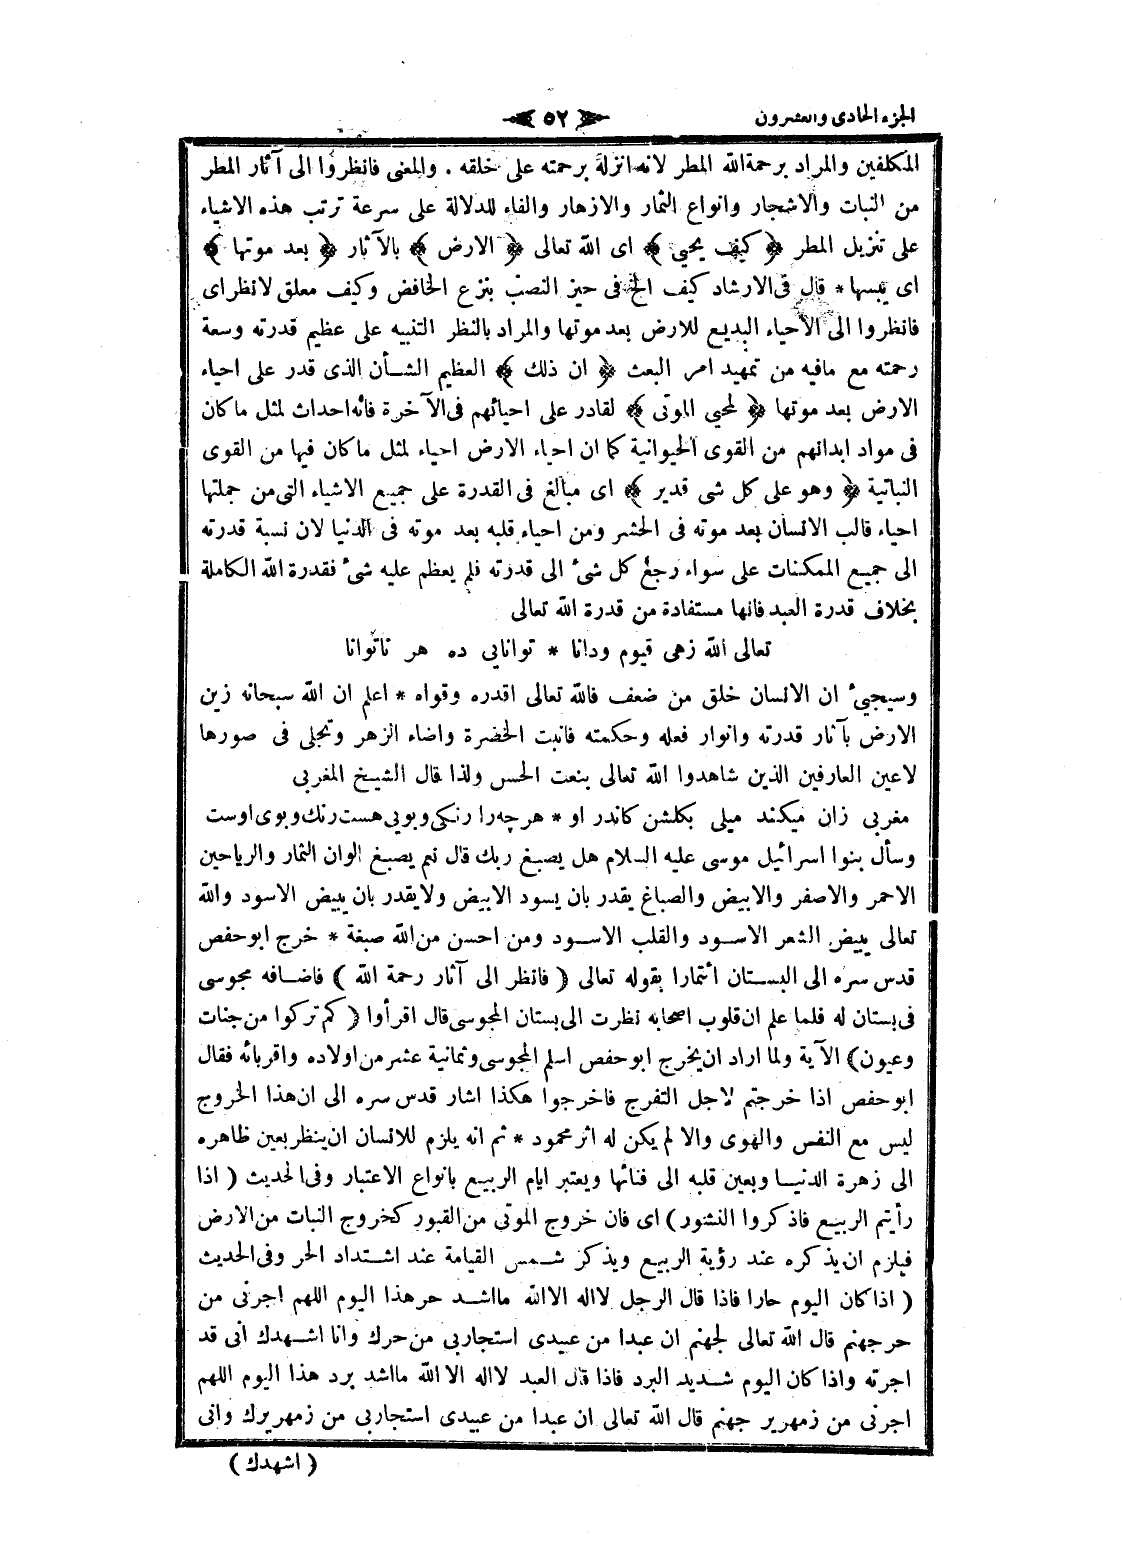 الجزء الحادى والعشرون
٥٢
المكلفين والمراد برحمة الله المطر لانه انزله برحمته على خلقه . والمعنى فانظروا الى آثار المطر
من النبات والاشجار وانواع الثمار والازهار والفاء للدلالة على سرعة ترتب هذه الاشياء
على تنزيل المطر ﴿ كيف يحيى ﴾ اى الله تعالى ﴿ الارض ﴾ بالآثار ﴿ بعد موتها ﴾
اى يبسها * قال فى الارشاد كيف الخ فى حيز النصب بنزع الخافض وكيف معلق لانظر اى
فانظروا الى الاحياء البديع للارض بعد موتها والمراد بالنظر التنبيه على عظيم قدرته وسعة
رحمته مع مافيه من تمهيد امر البعث ﴿ ان ذلك ﴾ العظيم الشأن الذى قدر على احياء
الارض بعد موتها ﴿ لمحيى الموتى ﴾ لقادر على احيائهم فى الآخرة فانه احداث لمثل ماكان
فى مواد ابدانهم من القوى الحيوانية كما ان احياء الارض احياء لمثل ماكان فيها من القوى
النباتية ﴿ وهو على كل شى قدير ﴾ اى مبالغ فى القدرة على جميع الاشياء التى من جملتها
احياء قالب الانسان بعد موته فى الحشر ومن احياء قلبه بعد موته فى الدنيا لان نسبة قدرته
الى جميع الممكنات على سواء رجع كل شىء الى قدرته فلم يعظم عليه شىء فقدرة الله الكاملة
بخلاف قدرة العبد فانها مستفادة من قدرة الله تعالى
تعالى الله زهى قيوم ودانا * توانايى ده هر ناتوانا
وسيجىء ان الانسان خلق من ضعف فالله تعالى اقدره وقواه * اعلم ان الله سبحانه زين
الارض بآثار قدرته وانوار فعله وحكمته فانبت الخضرة واضاء الزهر وتجلى فى صورها
لاعين العارفين الذين شاهدوا الله تعالى بنعت الحس ولذا قال الشيخ المغربى
مغربى زان ميكند ميلى بكلشن كاندر او * هرچه را رنكى وبويى هست رنك وبوى اوست
وسأل بنوا اسرائيل موسى عليه السلام هل يصبغ ربك قال نعم يصبغ الوان الثمار والرياحين
الاحمر والاصفر والابيض والصباغ يقدر بان يسود الابيض ولايقدر بان يبيض الاسود والله
تعالى يبيض الشعر الاسود والقلب الاسود ومن احسن من الله صبغة * خرج ابوحفص
قدس سره الى البستان ائتمارا بقوله تعالى ( فانظر الى آثار رحمة الله ) فاضافه مجوسى
فى بستان له فلما علم ان قلوب اصحابه نظرت الى بستان المجوسى قال اقرأوا ( كم تركوا من جنات
وعيون) الآية ولما اراد ان يخرج ابوحفص اسلم المجوسى وثمانية عشر من اولاده واقربائه فقال
ابوحفص اذا خرجتم لاجل التفرج فاخرجوا هكذا اشار قدس سره الى ان هذا الخروج
ليس مع النفس والهوى والا لم يكن له اثر محمود * ثم انه يلزم للانسان ان ينظر بعين ظاهره
الى زهرة الدنيا وبعين قلبه الى فنائها ويعتبر ايام الربيع بانواع الاعتبار وفى الحديث ( اذا
رأيتم الربيع فاذكروا النشور) اى فان خروج الموتى من القبور كخروج النبات من الارض
فيلزم ان يذكره عند رؤية الربيع ويذكر شمس القيامة عند اشتداد الحر وفى الحديث
( اذا كان اليوم حارا فاذا قال الرجل لااله الاالله مااشد حر هذا اليوم اللهم اجرنى من
حر جهنم قال الله تعالى لجهنم ان عبدا من عبيدى استجاربى من حرك وانا اشهدك انى قد
اجرته واذا كان اليوم شديد البرد فاذا قال العبد لااله الا الله مااشد برد هذا اليوم اللهم
اجرنى من زمهرير جهنم قال الله تعالى ان عبدا من عبيدى استجاربى من زمهريرك وانى
( اشهدك )